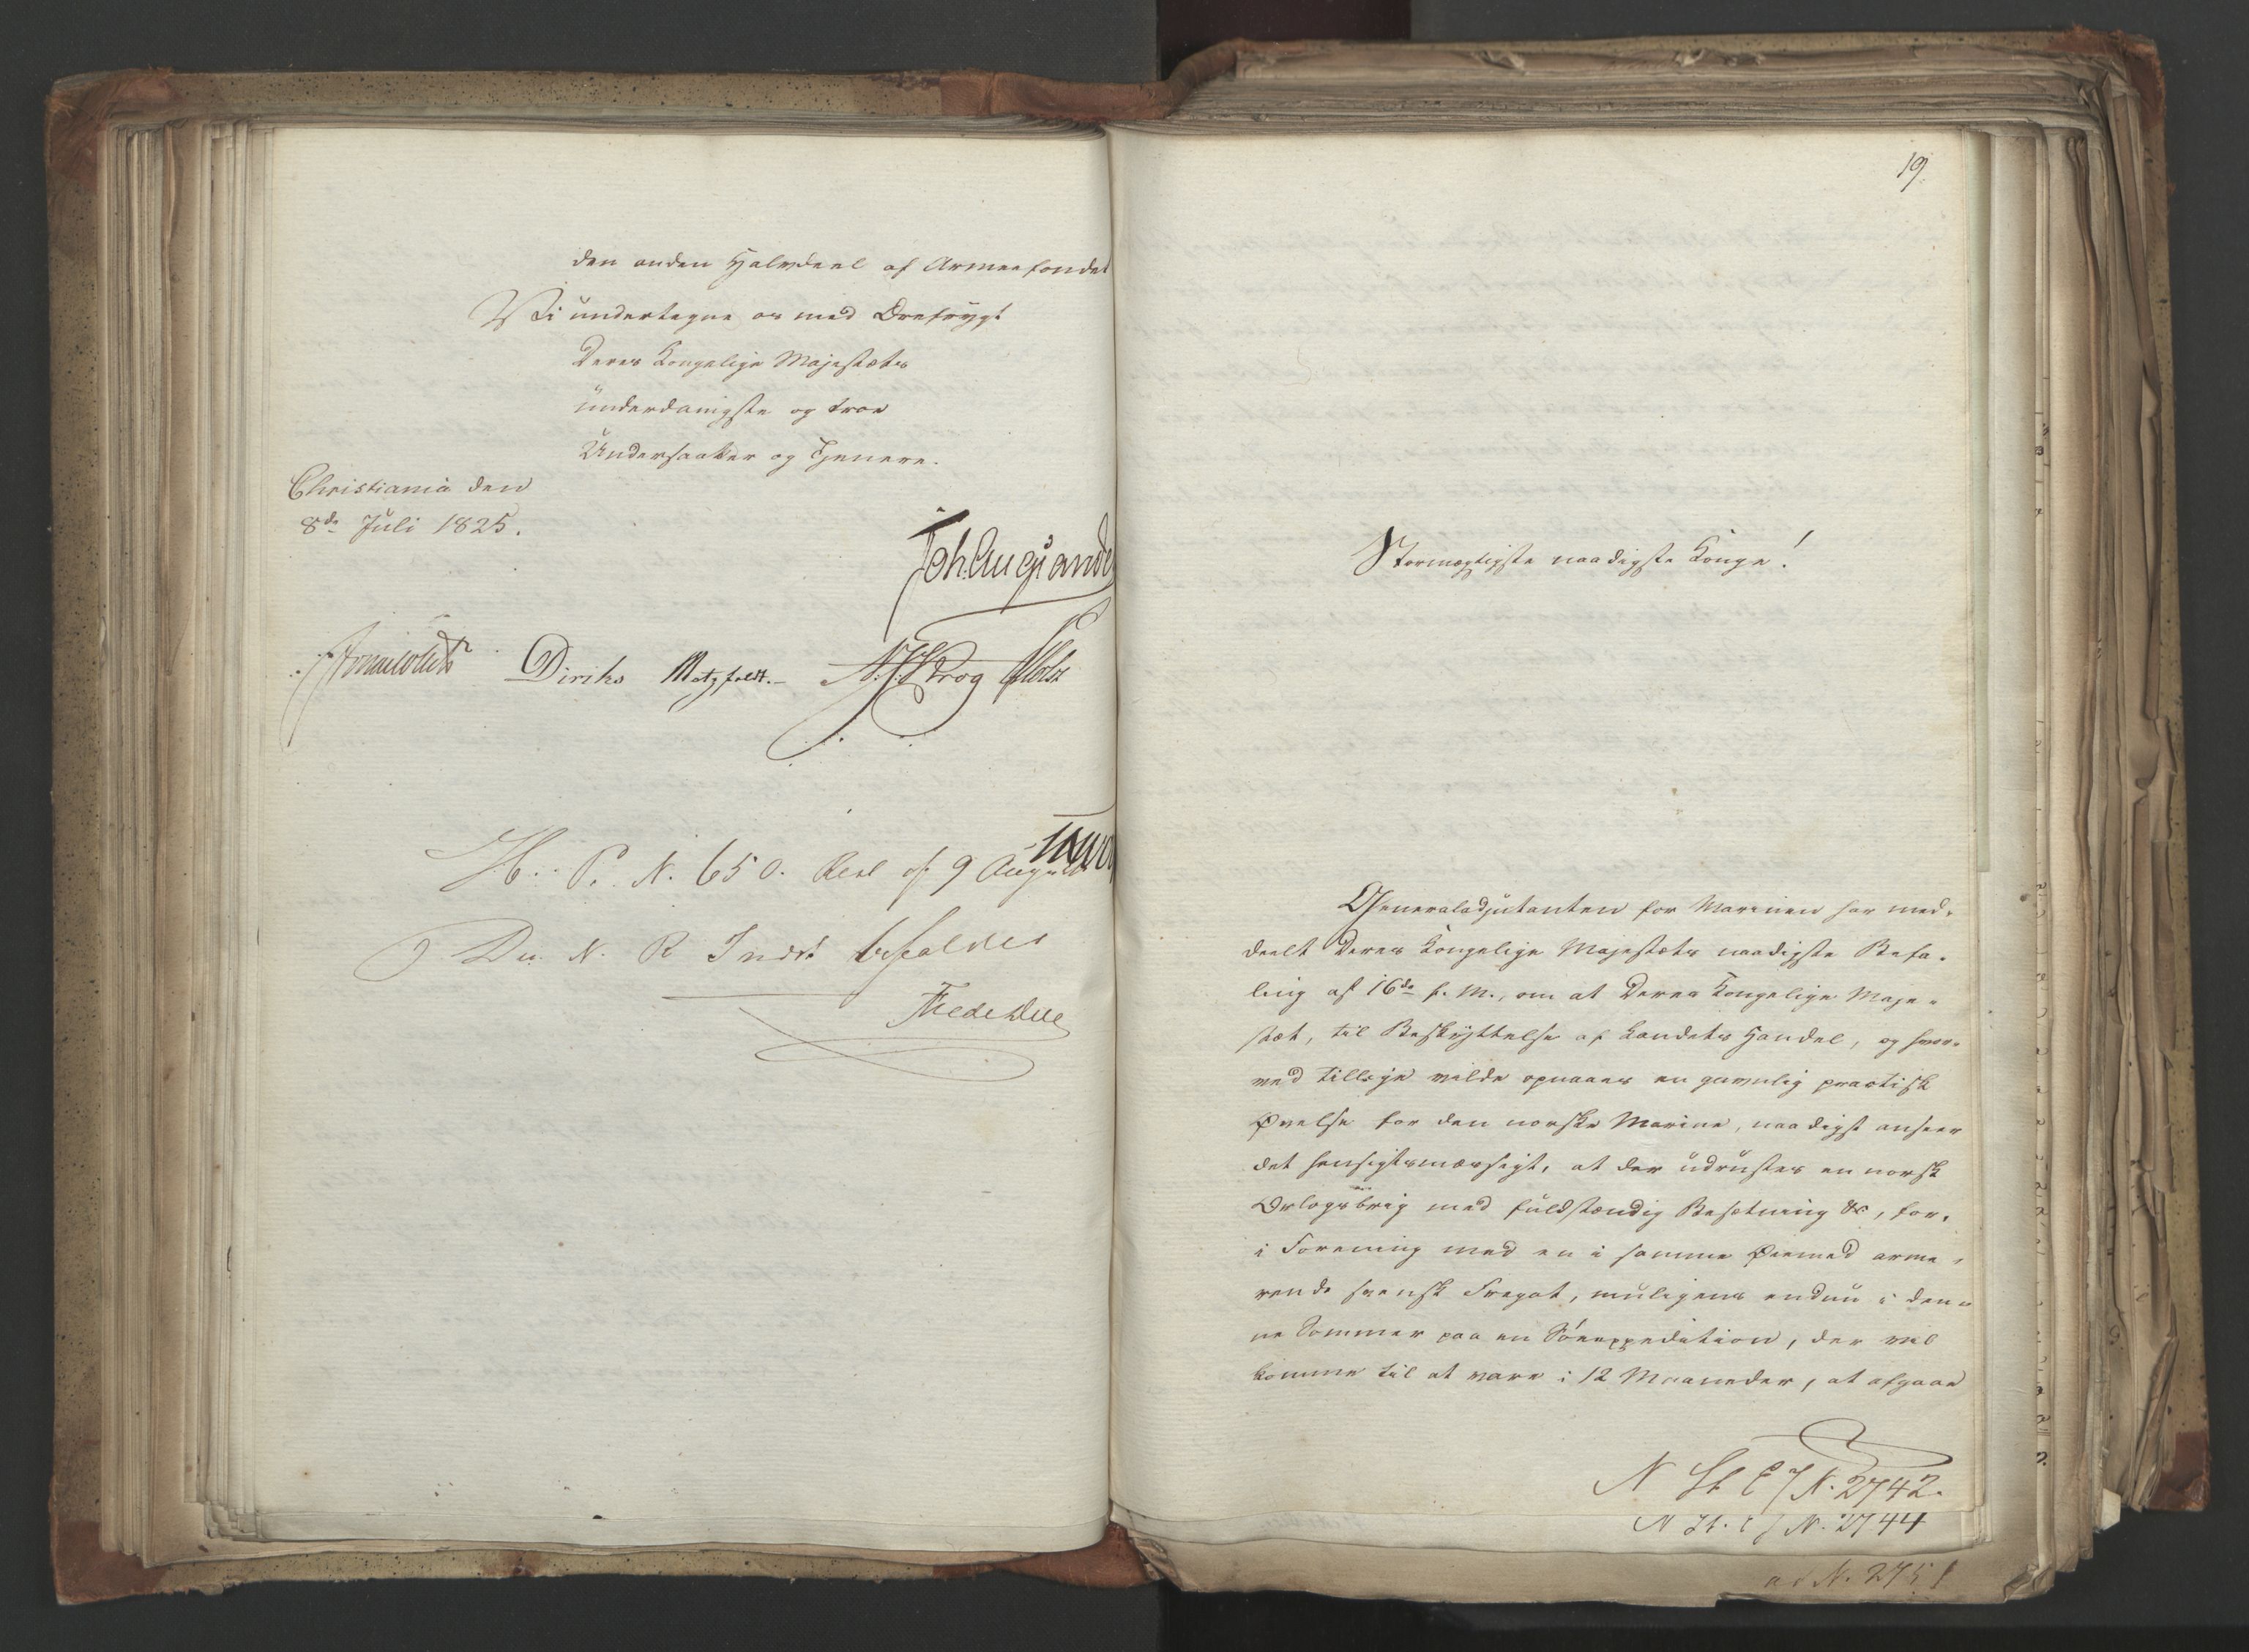 den anden Halvdeel af Armeefondet
Vi undertegne os med Ærefrygt
Deres Kongelige Majestæts
underdanigste og troe
Undersaatter og Tjenere.
Christiania den
8de Juli 1825.
Joh. Aug. Sande
Diriks Motzfeldt. N. J. Krog Holst
H. P. N. 650. Resl af 9 August
Du N. R Indst befaldes
19
Stormægtigste naadigste Konge!
Generaladjutanten for Marinen har med-
deelt Deres Kongelige Majestæts naadigste Befa-
ling af 16de f. M., om at Deres Kongelige Maje-
stæt, til Beskyttelse af Landets Handel, og hvor-
ved tillige vilde opnaaes en gavnlig practisk
Øvelse for den norske Marine, naadigst anseer
det hensigtsmæssigt, at der udrustes en norsk
Orlogsbrig med fuldstændig Besætning &c, for,
i Forening med en i samme Øiemed arme-
rende svensk Fregat, muligens endnu i den-
ne Sommer paa en Söeexpedition, der vil
komme til at vare i 12 Maaneder, at afgaae
N St E J N. 2742.
N St. E J N. 2744
ad N. 2751